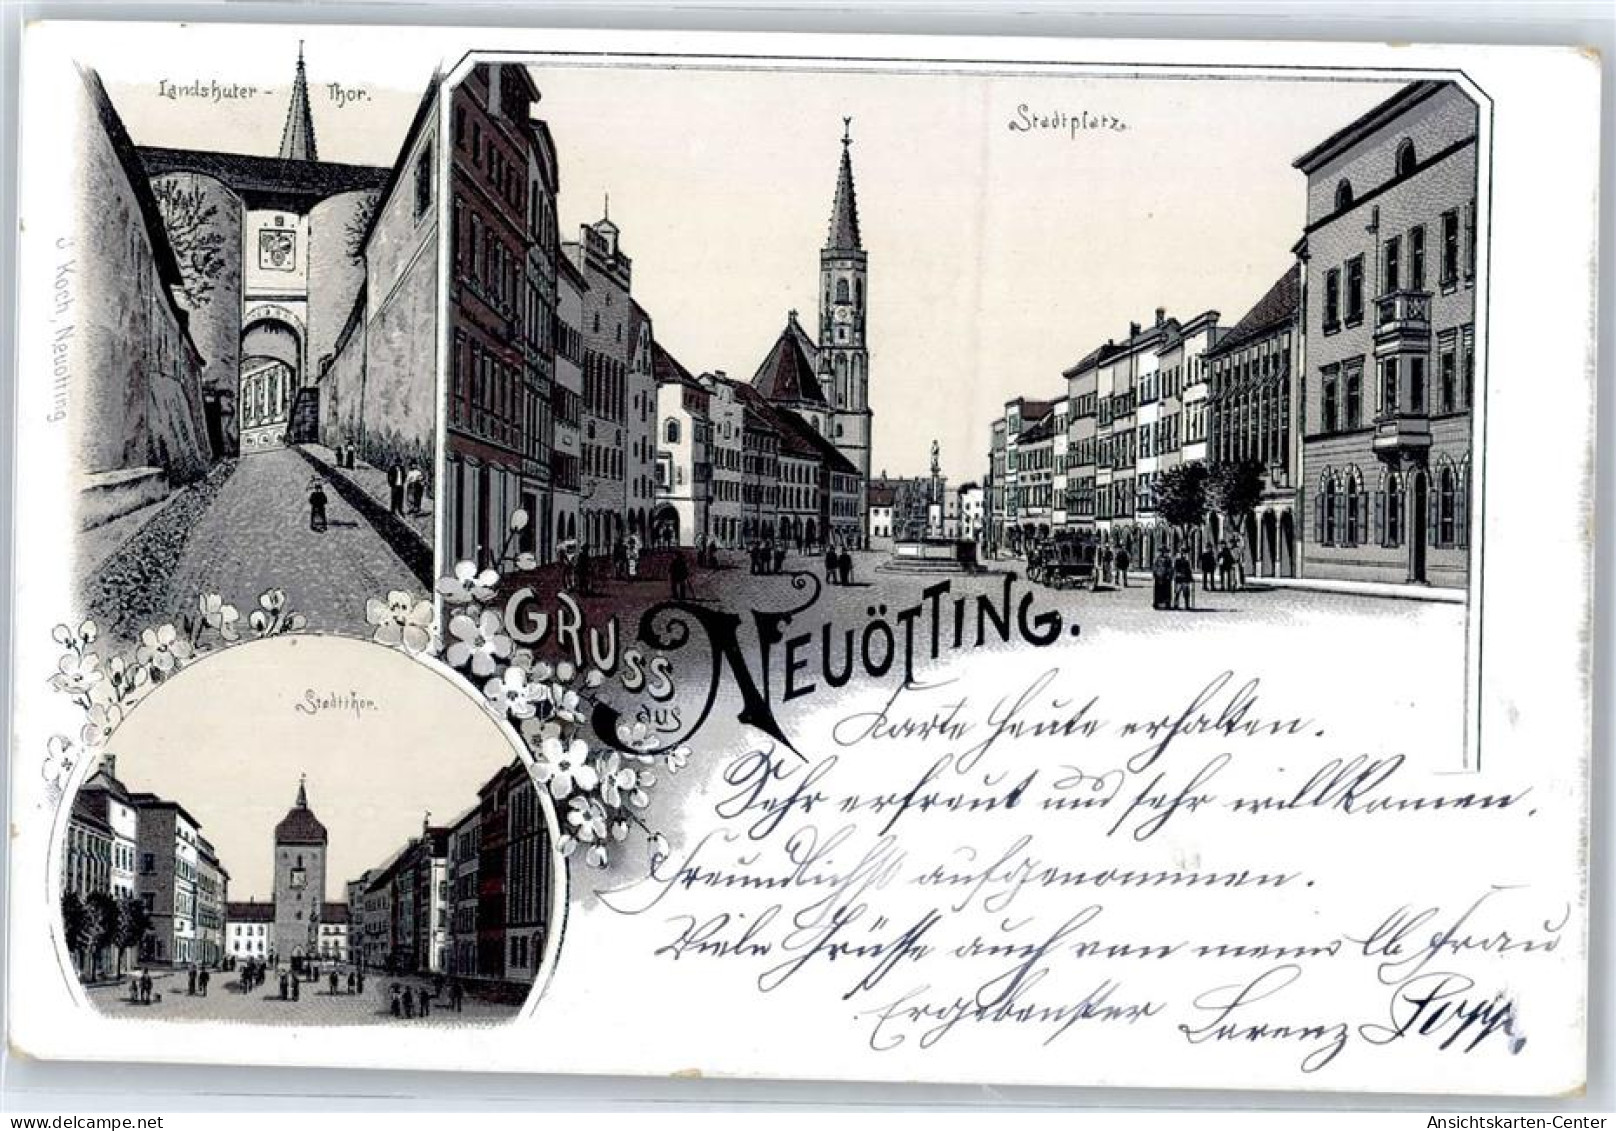 Landshuter - Thor.
Stadtplatz.
J. Koch, Neuötting
GRUSS
aus
NEUÖTTING.
Stadtthor.
Karte heute erhalten.
Sehr erfreut und sehr willkomen.
Freundlichst aufgenommen.
Viele Grüsse auch von meine lb. Frau
Ergebenster Lorenz Popp.
Ansichtskarten-Center